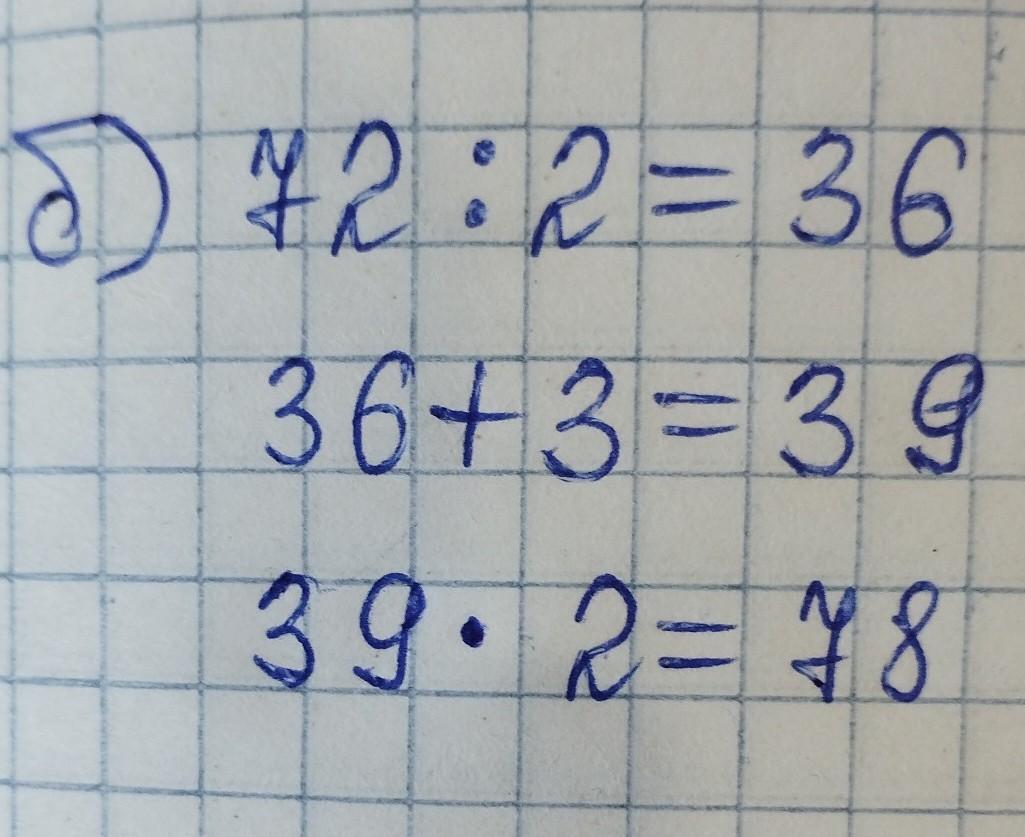 б) 72 : 2 = 36
36 + 3 = 39
39 · 2 = 78